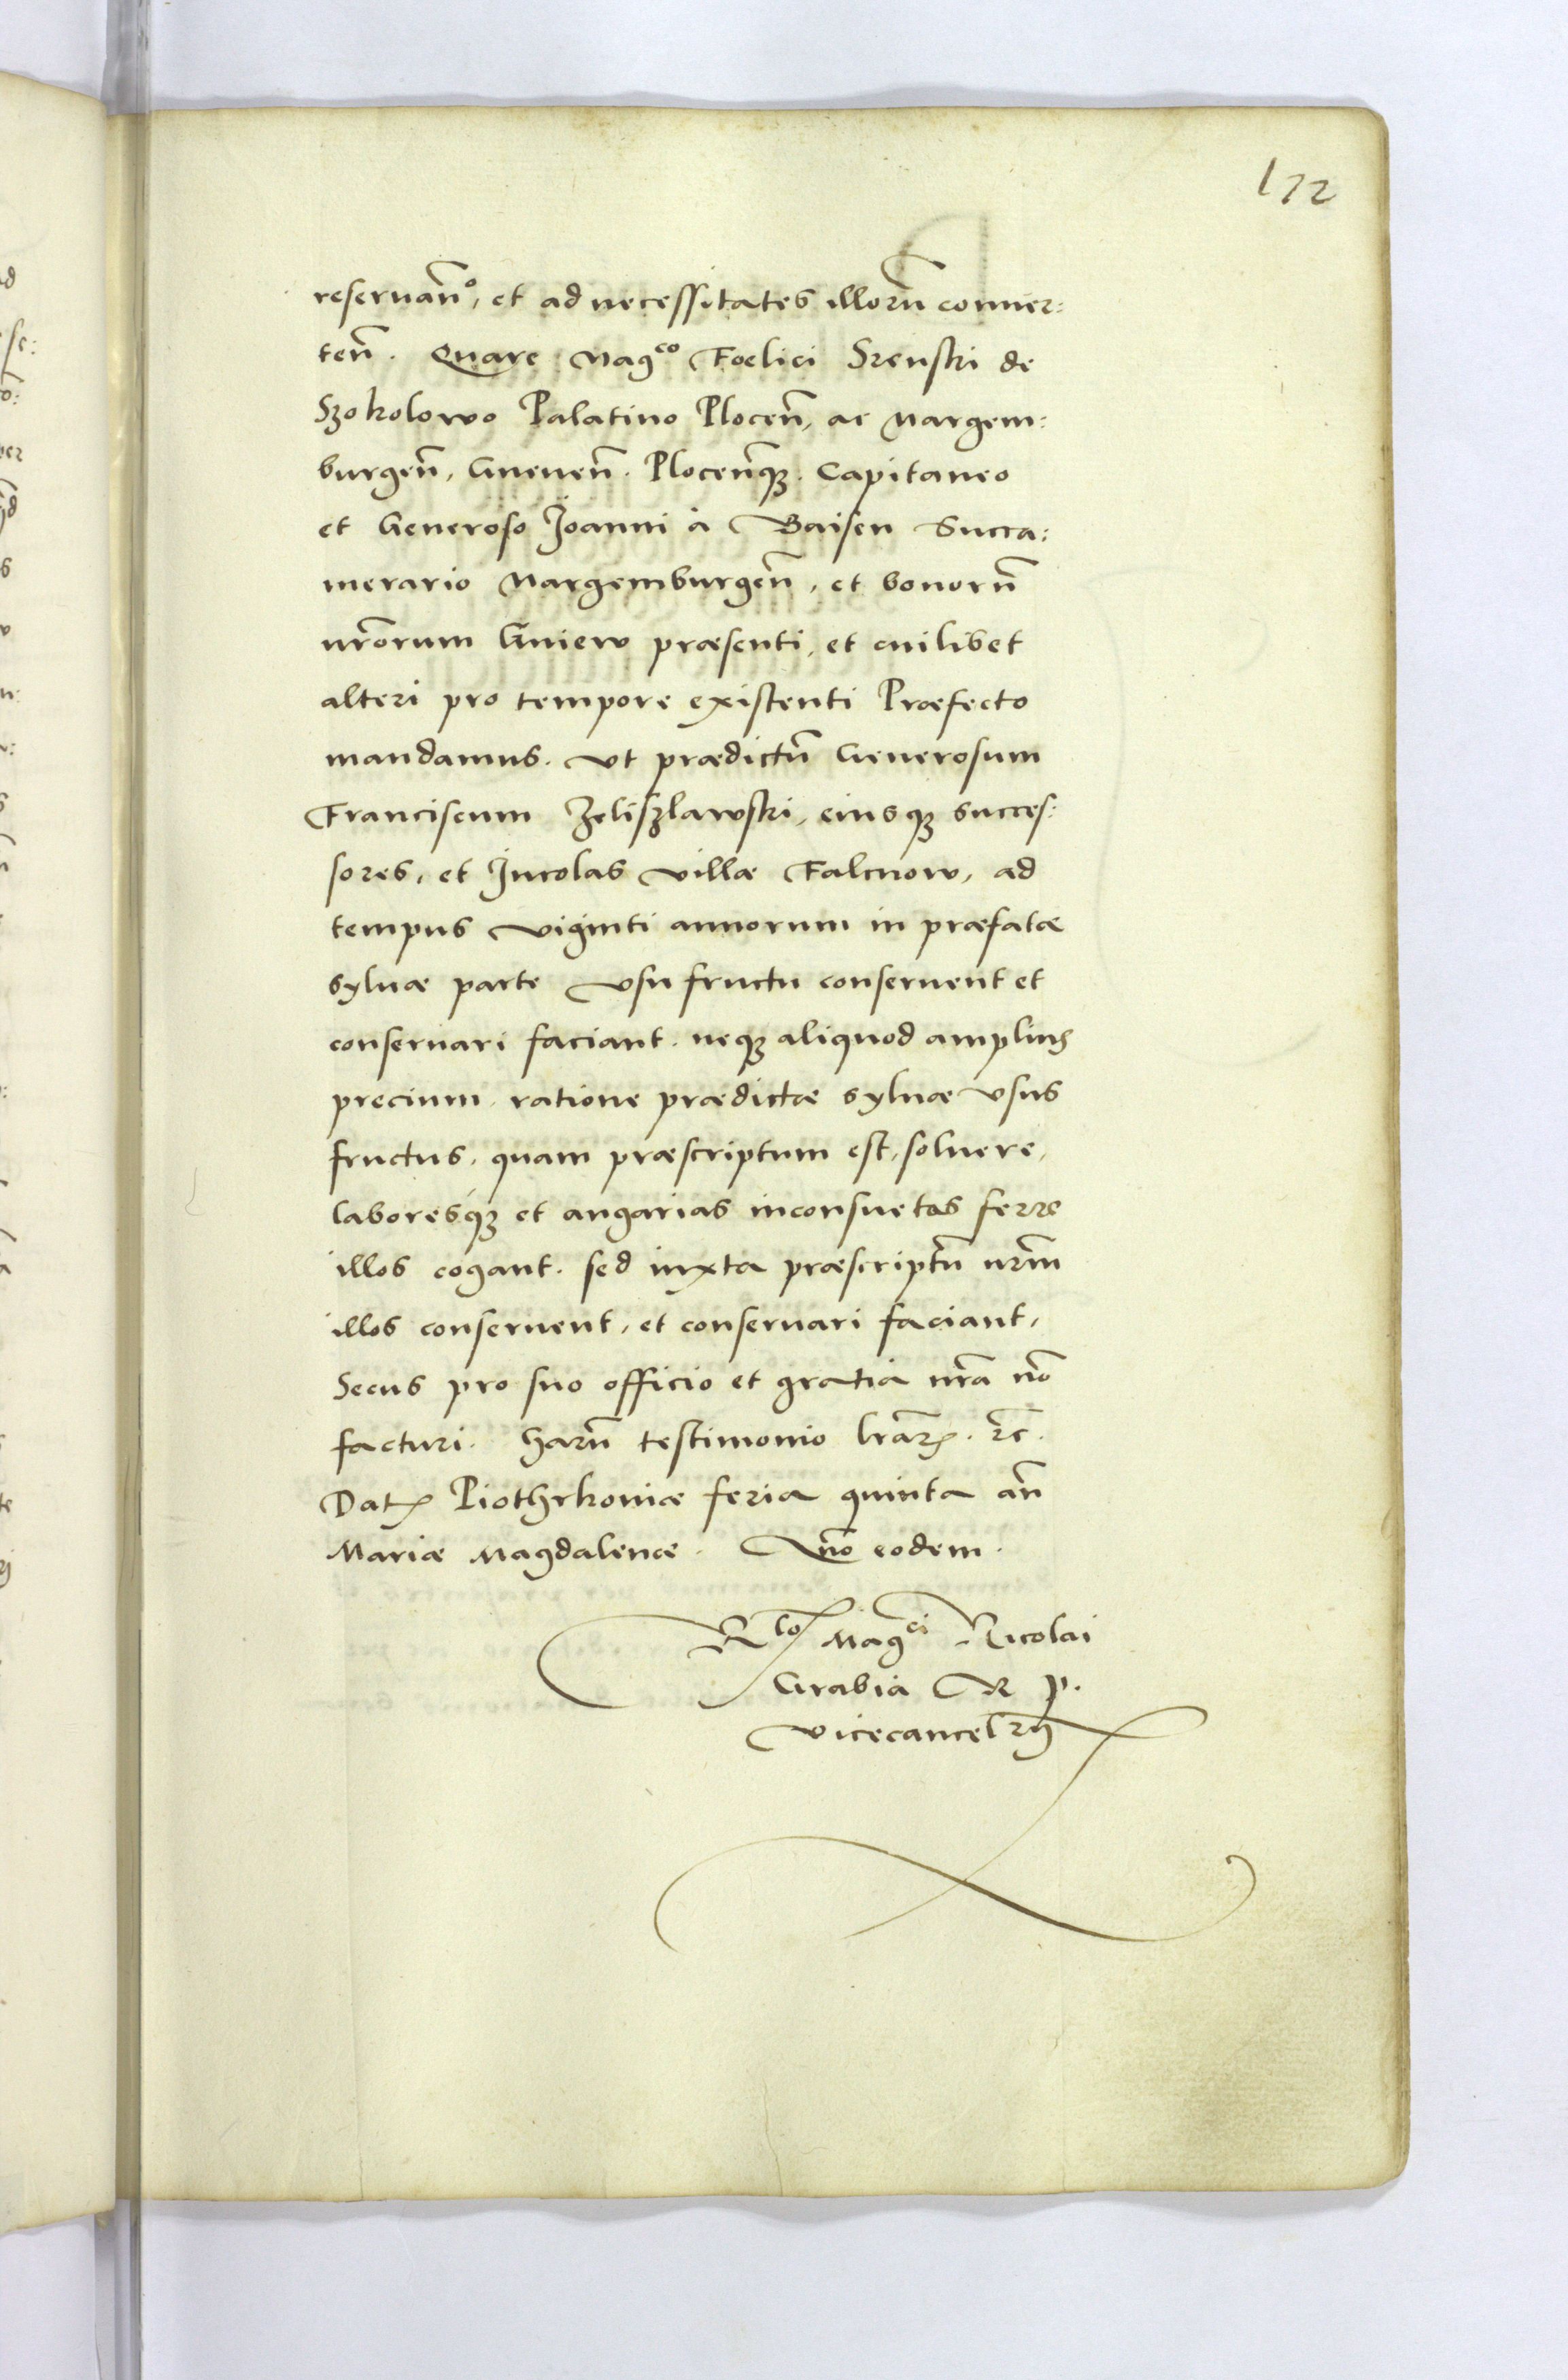 172
reseruan̄º, et ad necessitates illorū conuer:
ten̄. Quare Mag^co Foelici Srenski de
Szokolowo Palatino Plocen̄, ac Margem:
burgen̄, Gneuen̄. Plocen̄q₃. Capitaneo
et Generoso Joanni à Baisen Succa:
merario Margemburgen̄, et bonorū
nr̄orum Gniew præsenti, et cuilibet
alteri pro tempore existenti Præfecto
mandamus. Vt prædictū Generosum
Franciscum Zeliszlawski, eiusq₃ succes:
sores, et Jncolas villæ Falcnow, ad
tempus viginti annorum in præfatæ
syluæ parte vsufructu conseruent et
conseruari faciant. neq₃ aliquod amplius
precium ratione prædictæ syluæ vsus
fructus, quam præscriptum est, soluere,
laboresq₃ et angarias inconsuetas ferre
illos cogant. sed iuxta præscriptū nr̄m
illos conseruent, et conseruari faciant,
Secus pro suo officio et gratia nr̄a nō
facturi. harū testimonio lr̄aꝝ. ꝛc̄.
Datꝝ Piothrkouiæ feria quinta an̄
Mariæ Magdalenæ. Anō eodem.
R^lo Mag^ci Nicolai
Grabia R P.
Vicecancelrȷ